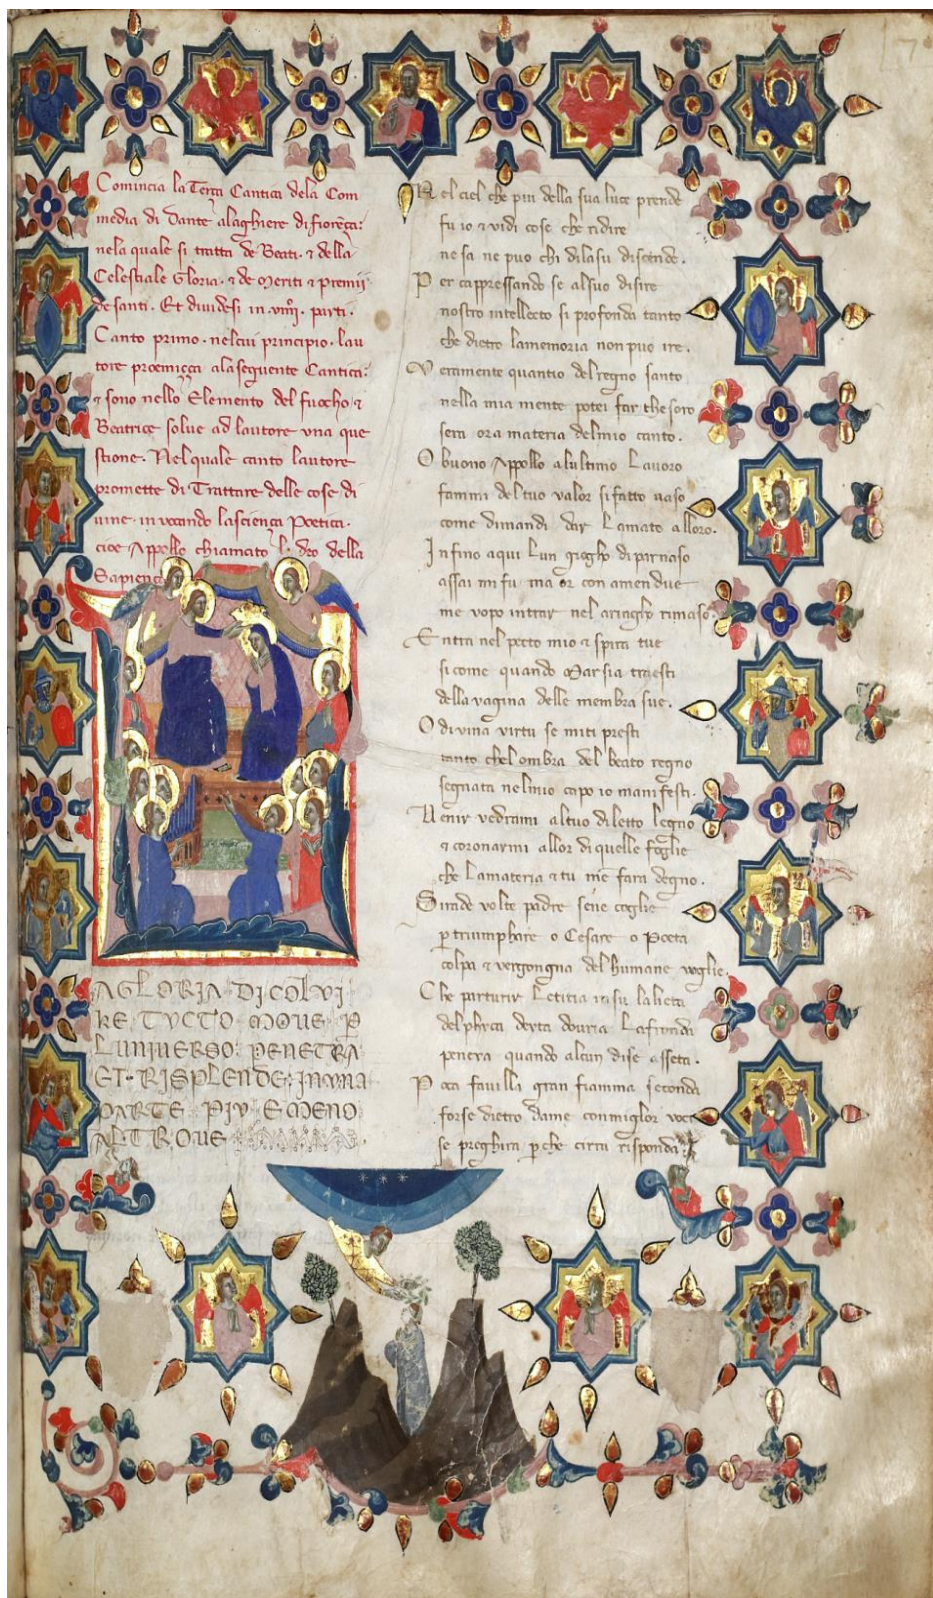 Comincia la Terça Cantica dela Com
media di Dante alaghiere di fiorẽça:
nela quale si tratta de Beati · ⁊ della
Celestiale Gloria · ⁊ de meriti ⁊ premii
de santi · Et dividesi in · viiij · parti ·
Canto primo · nelcui principio · lau
tore proemiçça ala seguente Cantica:
⁊ sono nello Elemento del fuocho · ⁊
Beatrice solve ad lautore una que
stione · Nel quale canto lautore
promette di Trattare delle cose di
uine · in vocando la sciença Poetica ·
cioe Appollo chiamato l deo della
Sapiença
A GLORIA DI COLVI
KE TVCTO MOVE P̲
LVNIVERSO PENETRA
ET RISPLENDE IN VNA
PARTE PIV E MENO
ALTROVE
Nel ciel che piu della sua luce prende
fu io ⁊ vidi cose che ridire
ne sa ne puo chi dilasu discende ·
Per cappressando se alsuo disire
nostro intellecto si profonda tanto
che dietro lamemoria non puo ire ·
Veramente quantio delregno santo
nella mia mente potei far thesoro
sera ora materia delmio canto ·
O buono Appollo alultimo Lavoro
fammi deltuo valor sifatto uaso
come dimandi dar Lamato alloro ·
Infino aqui Lun giogho diparnaso
assai mi fu · ma or con amendue
me vopo intrar nel aringho rimaso
Entra nel pecto mio ⁊ spira tue
sicome quando Marsia traesti
della vagina delle membra sue ·
O divina virtu se miti presti
tanto chel ombra del beato regno
segnata nelmio capo io manifesti ·
Venir vedrami altuo diletto legno
⁊ coronarmi allor di quelle foglie
che Lamateria ⁊ tu me fara degno ·
Sirade volte padre sene coglie
p̲ triumphare o Cesare o Poeta
colpa ⁊ vergongna del humane voglie
Che parturir Letitia insu lalieta
delphica deita douria Lafronda
penera quando alcun dise asseta ·
Poca favilla gran fiamma seconda
forse dietro dame conmiglor voci
se preghira p̲che cirra risponda